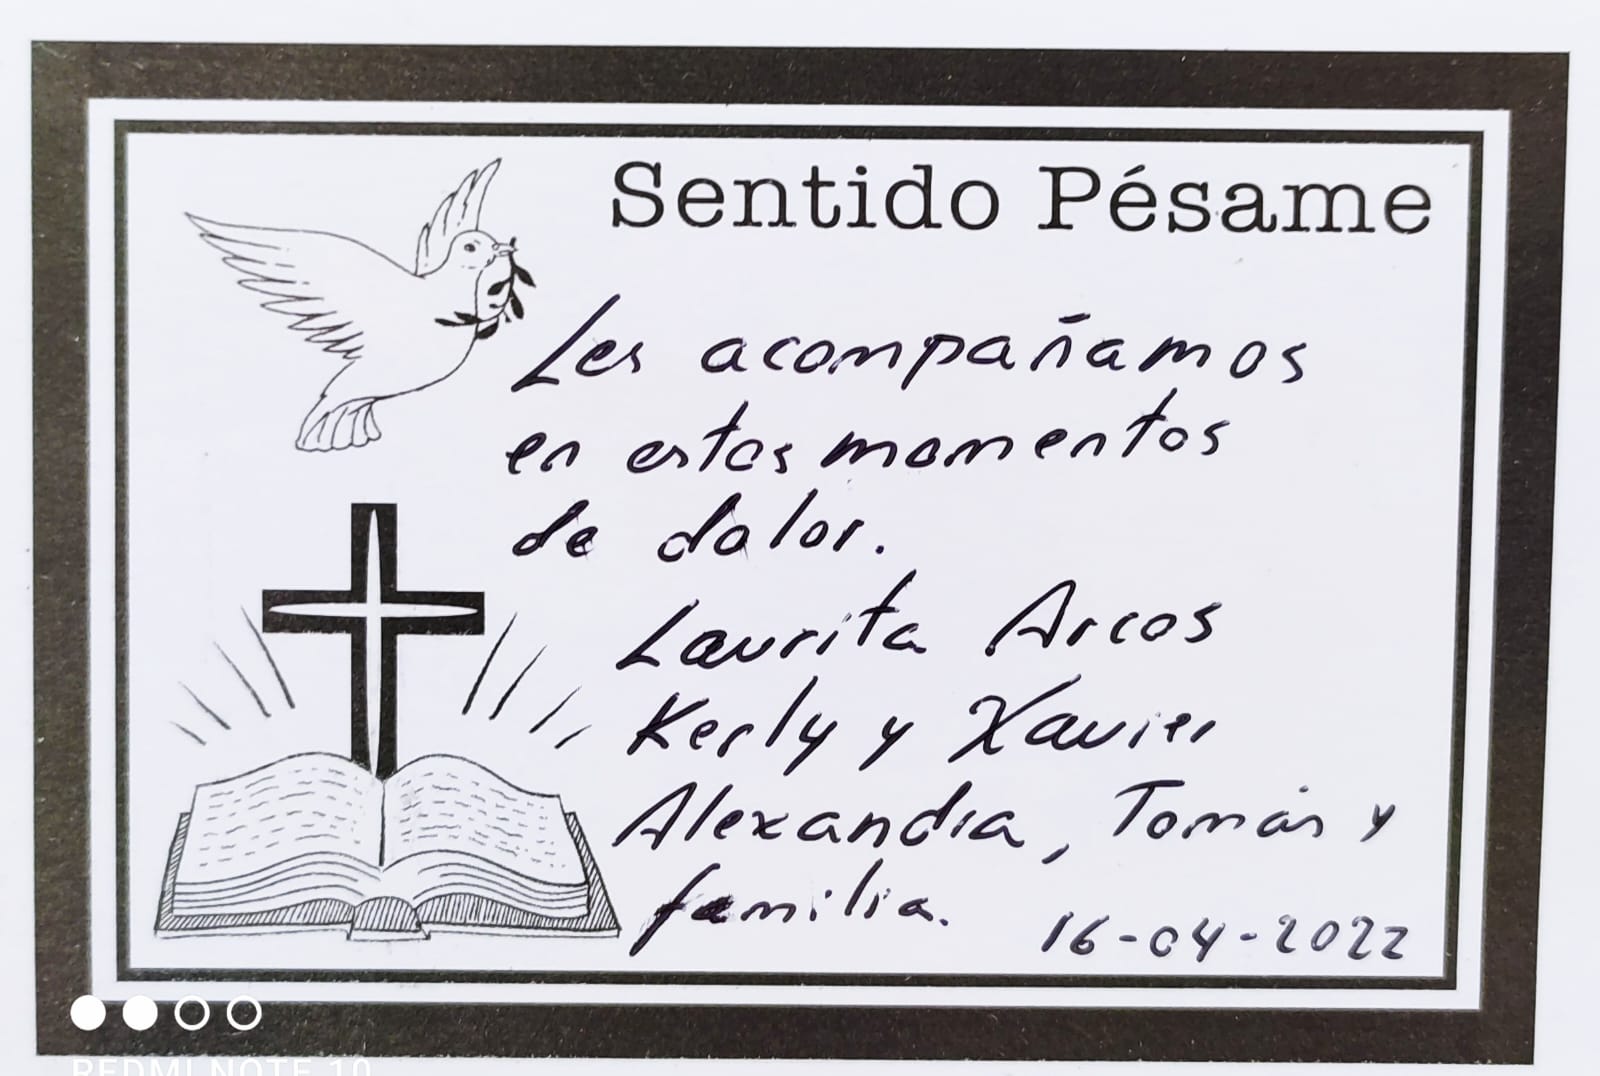 Sentido Pésame
Les acompañamos
en estos momentos
de dolor.
Laurita Arcos
Kerly y Xavier
Alexandra, Tomás y
familia.
16-04-2022
REDMI NOTE 10